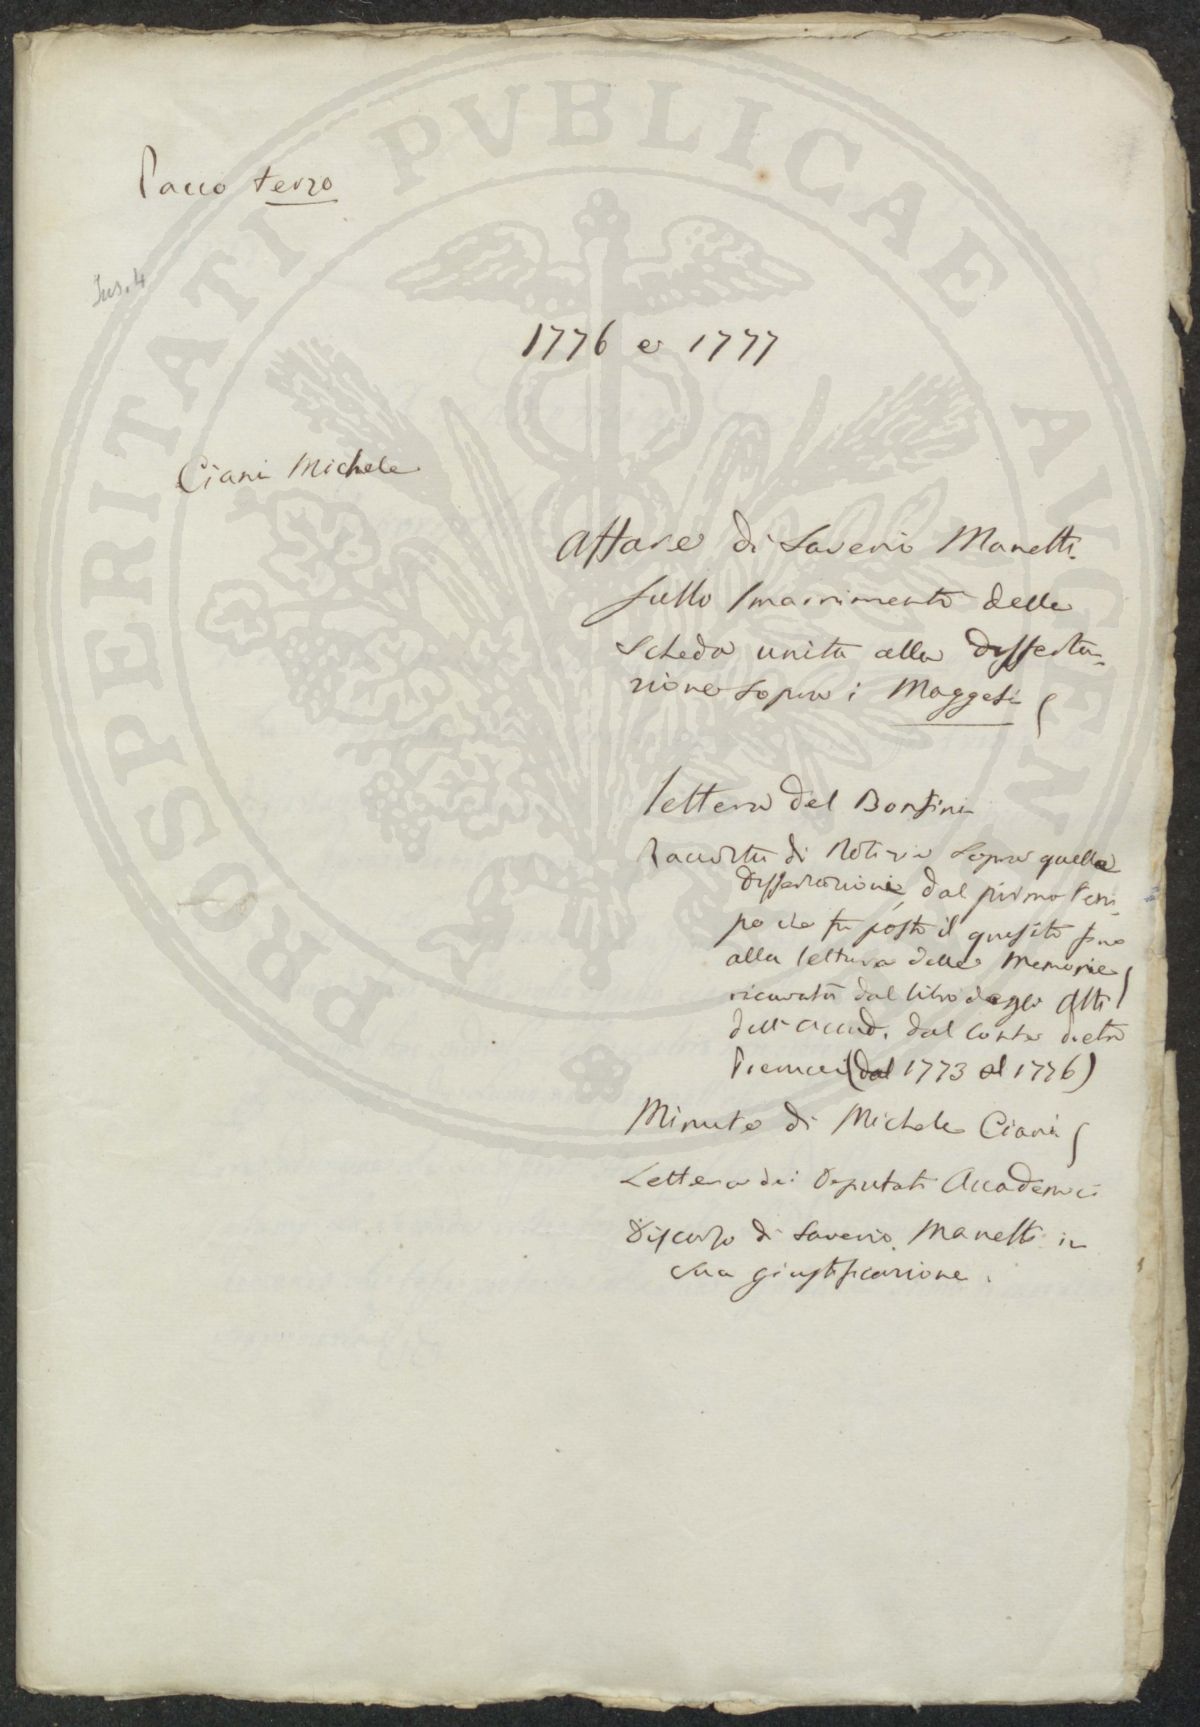 PROSPERITATI PVBLICAE AVGENDAE
Pacco terzo
Ins. 4
1776 e 1777
Ciani Michele
Affare di Saverio Manetti
sullo smarrimento della
scheda unita alla disserta-
zione sopra i Maggesi
lettera del Bonsini
Raccolta di Notizie sopra quella
dissertazione, dal primo tem-
po che fu posto il quesito fino
alla lettura delle Memorie
ricavata dal libro degli Atti
dell' Accad. dal Conte Pietro
Pierucci (dal 1773 al 1776)
Minute di Michele Ciani
Lettera dei Deputati Accademici
Discorso di Saverio Manetti in
sua giustificazione.